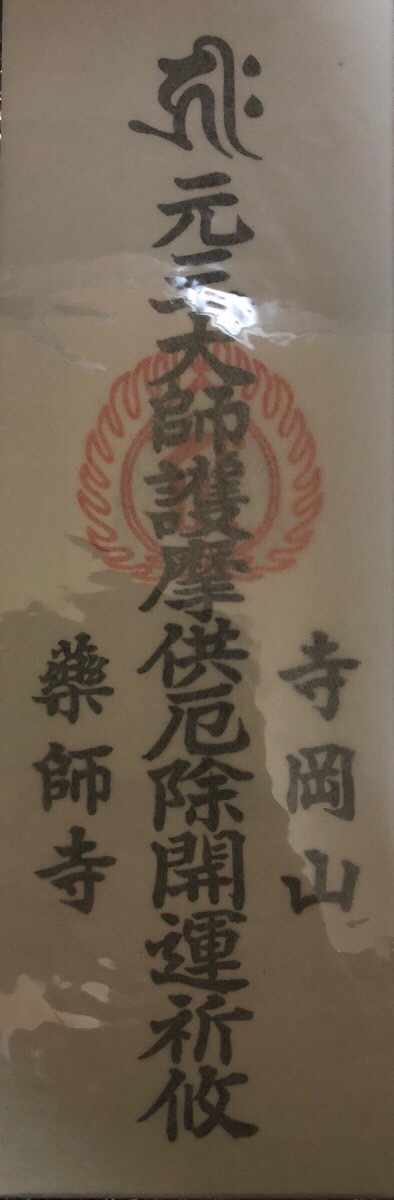 寺岡山
𑖮𑖿𑖨𑖱𑖾 元三大師護摩供厄除開運祈攸
藥師寺